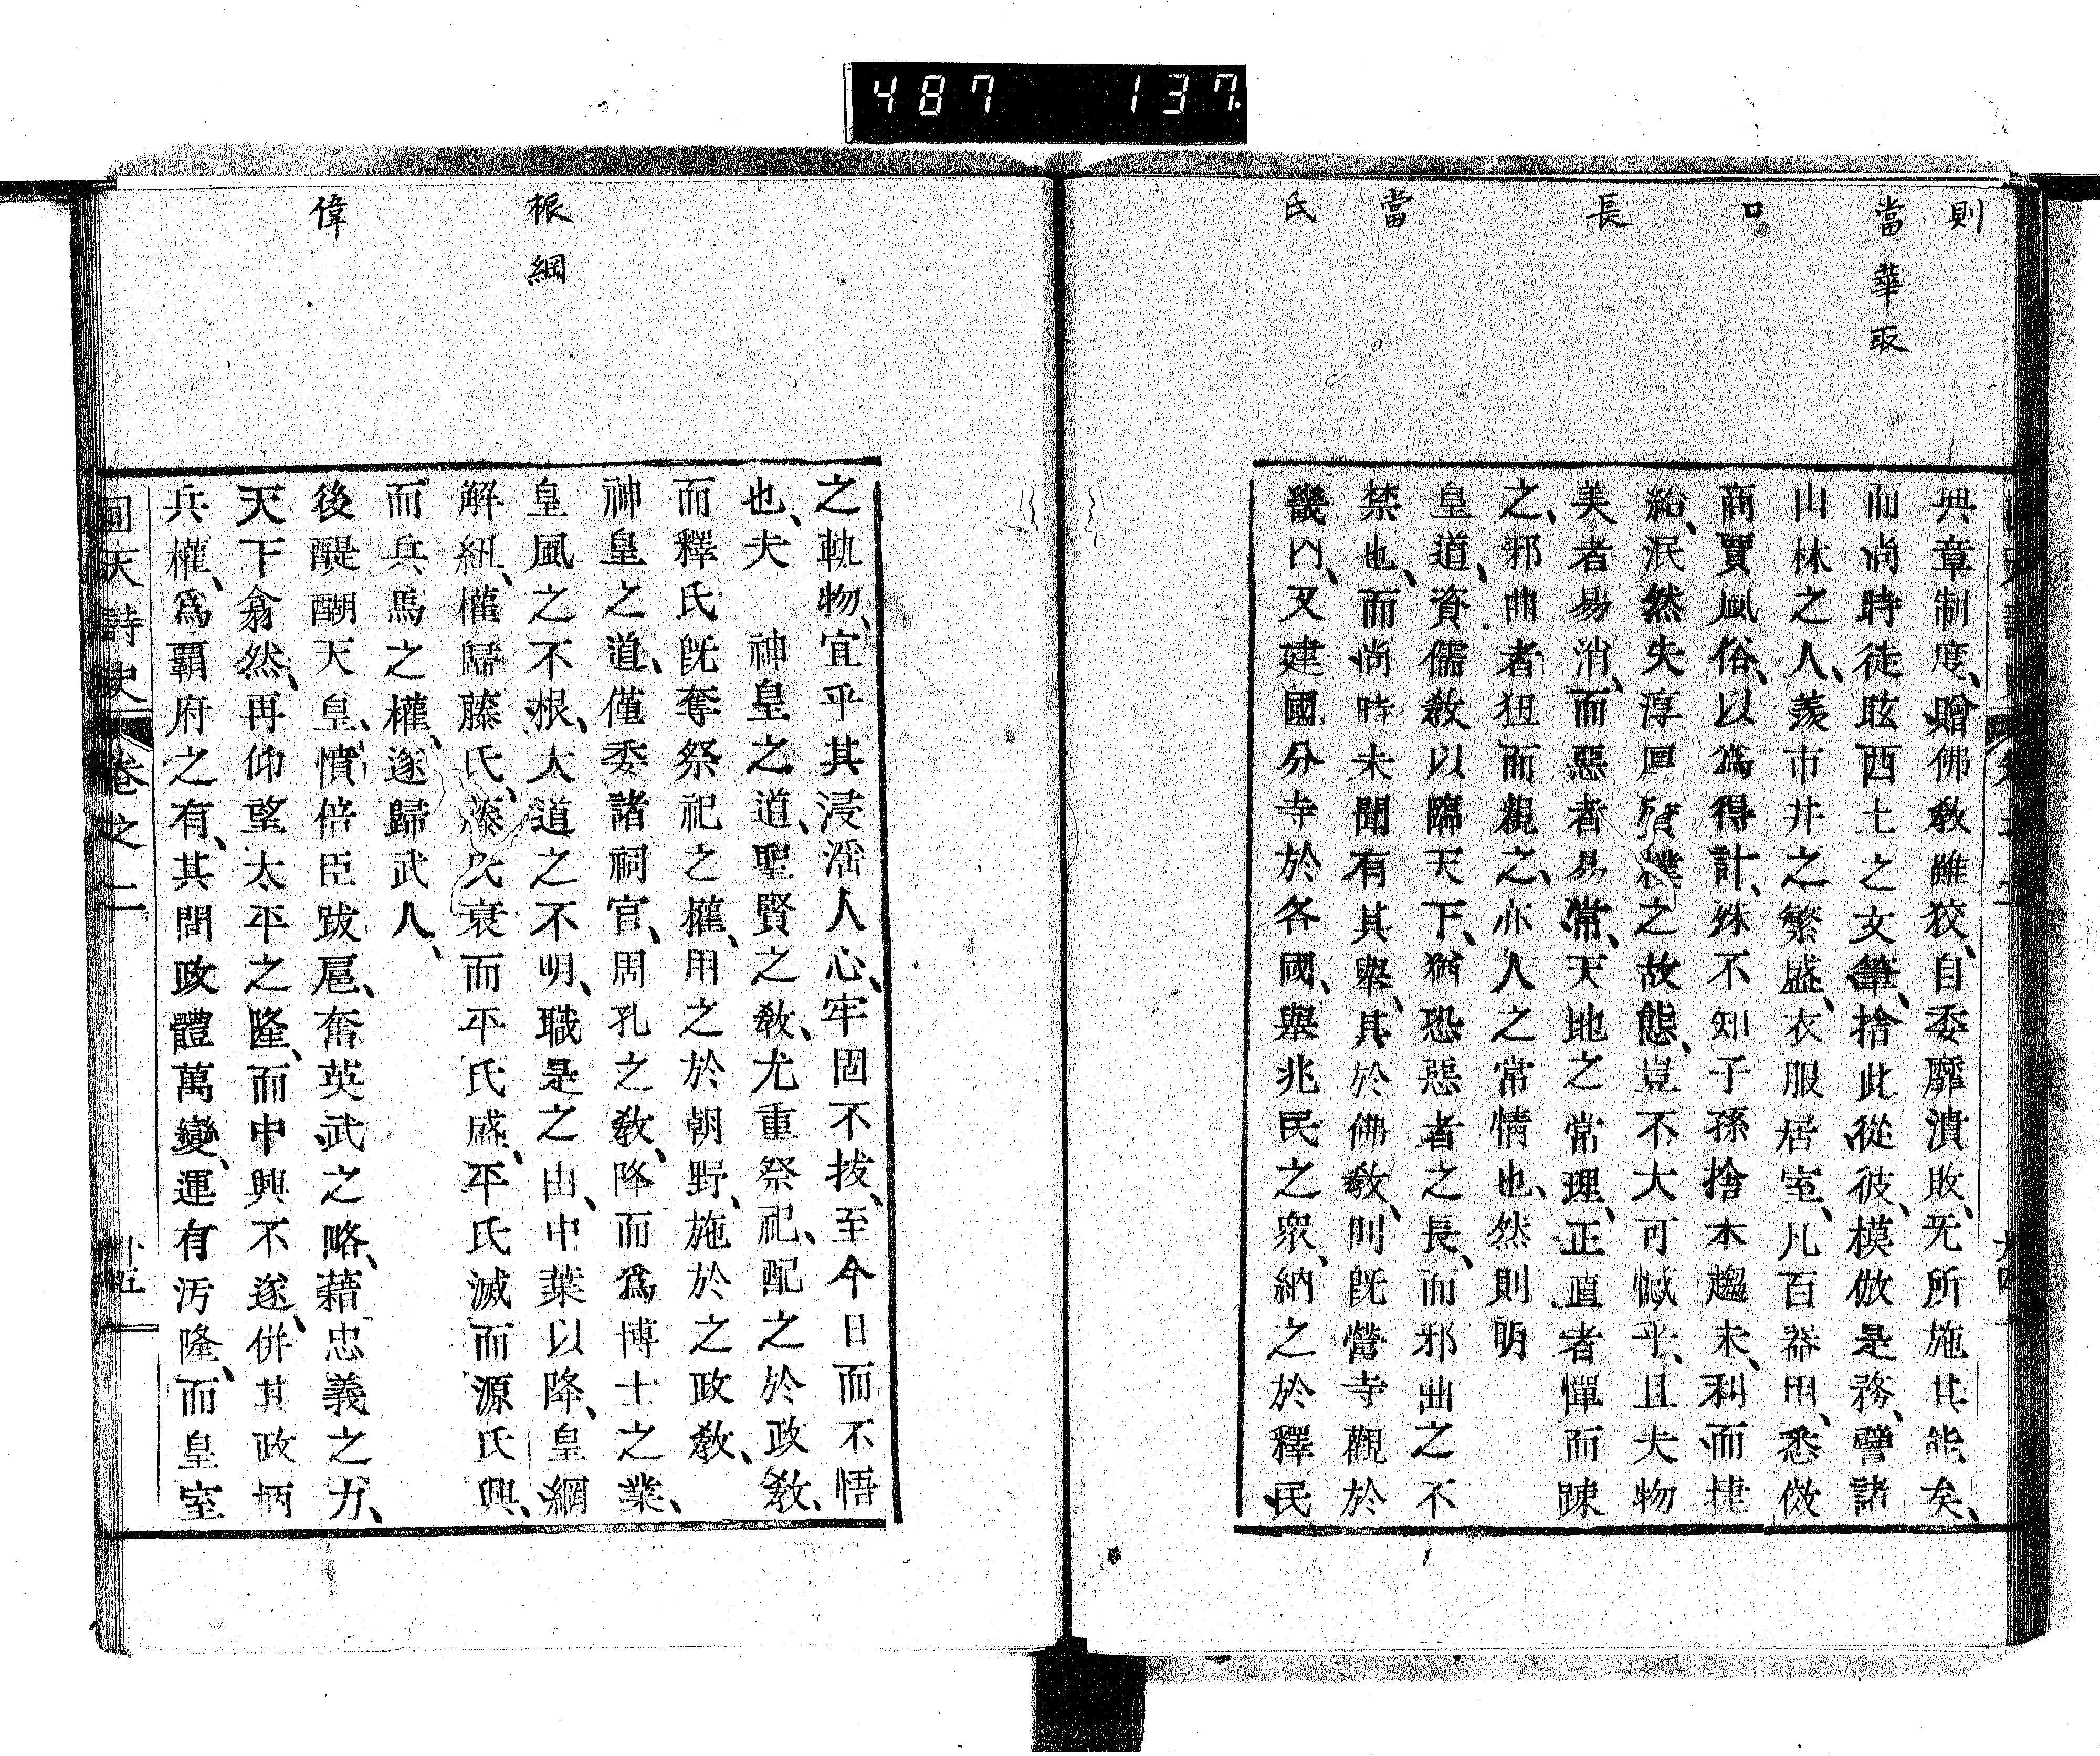 487 137
則
當 華 取
口
長
當
氏
典章制度、贈佛教雖狡、自委靡潰敗、无所施其能矣、
而尚時徒眩西土之文筆、捨此從彼、模倣是務、譬諸
山林之人、羨市井之繁盛、衣服居室、凡百器用、悉傚
商賈風俗、以爲得計、殊不知子孫捨本趨末、利而捷
給、泯然失淳厚質樸之故態、豈不大可憾乎、且夫物
美者易消、而惡者易常、天地之常理、正直者憚而踈
之、邪曲者狃而親之、亦人之常情也、然則明
皇道、資儒教以臨天下、猶恐惡者之長、而邪曲之不
禁也、而尚時未聞有其舉、其於佛教、則既營寺觀於
畿內、又建國分寺於各國、舉兆民之衆、納之於釋民
根 綱
偉
之軌物、宜乎其浸淫人心、牢固不拔、至今日而不悟
也、夫　神皇之道、聖賢之教、尤重祭祀、配之於政教、
而釋氏既奪祭祀之權、用之於朝野、施於之政教、
神皇之道、僅委諸祠官、周孔之教、降而爲博士之業、
皇風之不根、大道之不明、職是之由、中葉以降、皇網
解紐、權歸藤氏、藤氏衰而平氏盛、平氏滅而源氏興、
而兵馬之權、遂歸武人、
後醍醐天皇、憤倍臣跋扈、奮英武之略、藉忠義之力、
天下翕然、再仰望太平之隆、而中興不遂、併其政柄
兵權、爲覇府之有、其間政體萬變、運有汚隆、而皇室
回天詩史 卷之二 廿五